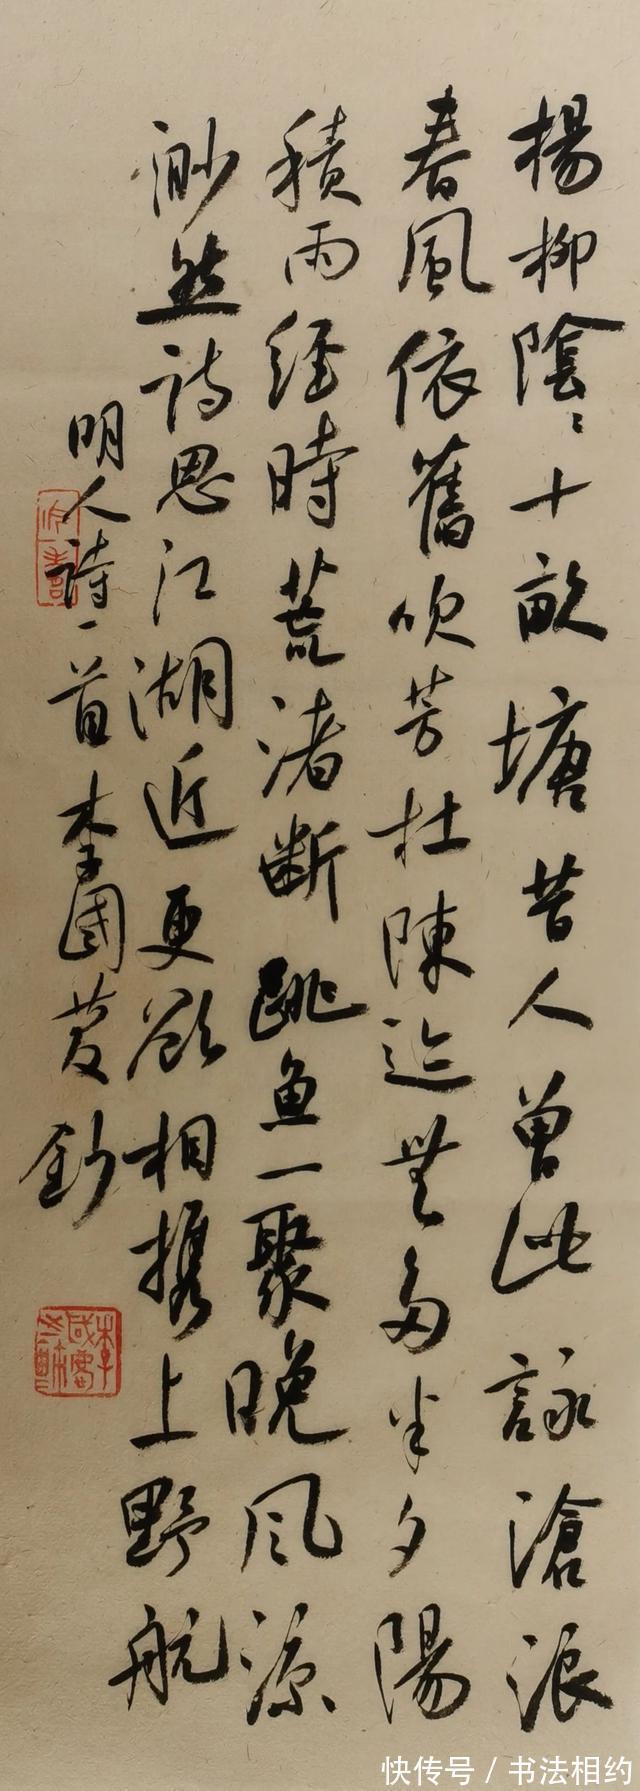 楊柳陰〻十畝塘昔人曾此詠滄浪
春風依舊吹芳杜陳迹無多半夕陽
積雨經時荒渚斷跳魚一聚晚风凉
渺然詩思江湖近更欲相攜上野航
明人詩一首李國慶鈔
快传号／书法相约